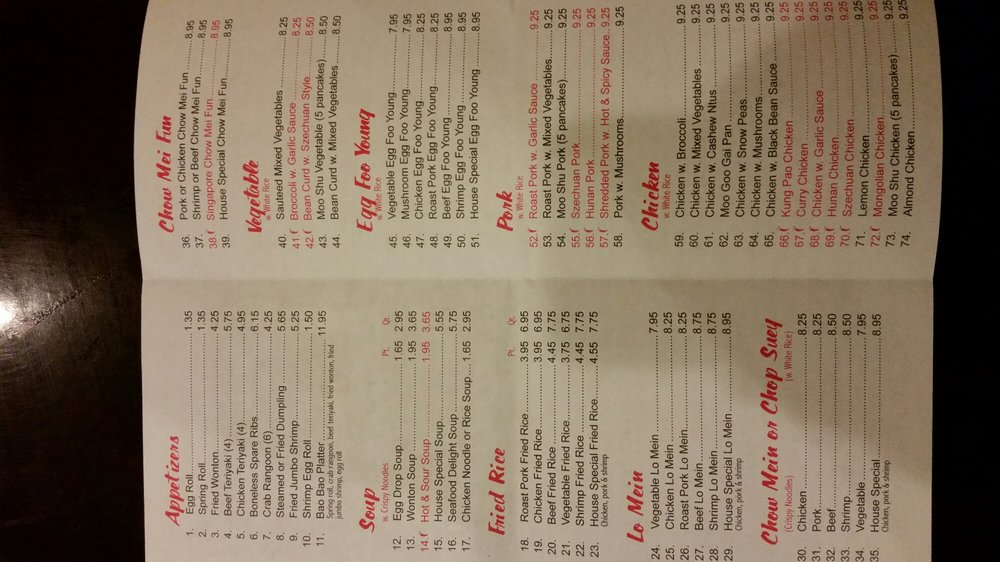 Appetizers
1. Egg Roll 1.35
2. Spring Roll 1.35
3. Fried Wonton 4.25
4. Beef Teriyaki (4) 5.75
5. Chicken Teriyaki (4) 4.95
6. Boneless Spare Ribs 6.15
7. Crab Rangoon (6) 4.25
8. Steamed or Fried Dumpling 5.65
9. Fried Jumbo Shrimp 5.25
10. Shrimp Egg Roll 1.50
11. Bao Bao Platter 11.95
Spring roll, crab rangoon, beef teriyaki, fried wonton, fried
jumbo shrimp, egg roll
Soup
w. Crispy Noodles Pt. Qt.
12. Egg Drop Soup 1.65 2.95
13. Wonton Soup 1.95 3.65
14. Hot & Sour Soup 1.95 3.65
15. House Special Soup 5.55
16. Seafood Delight Soup 5.75
17. Chicken Noodle or Rice Soup 1.65 2.95
Fried Rice
Pt. Qt.
18. Roast Pork Fried Rice 3.95 6.95
19. Chicken Fried Rice 3.95 6.95
20. Beef Fried Rice 4.45 7.75
21. Vegetable Fried Rice 3.75 6.75
22. Shrimp Fried Rice 4.45 7.75
23. House Special Fried Rice 4.55 7.75
Chicken, pork & shrimp
Lo Mein
24. Vegetable Lo Mein 7.95
25. Chicken Lo Mein 8.25
26. Roast Pork Lo Mein 8.25
27. Beef Lo Mein 8.75
28. Shrimp Lo Mein 8.75
29. House Special Lo Mein 8.95
Chicken, pork & shrimp
Chow Mein or Chop Suey
(Crispy Noodles) (w. White Rice)
30. Chicken 8.25
31. Pork 8.25
32. Beef 8.50
33. Shrimp 8.50
34. Vegetable 7.95
35. House Special 8.95
Chicken, pork & shrimp
Chow Mei Fun
36. Pork or Chicken Chow Mei Fun 8.95
37. Shrimp or Beef Chow Mei Fun 8.95
38. Singapore Chow Mei Fun 8.95
39. House Special Chow Mei Fun 8.95
Vegetable
w. White Rice
40. Sauteed Mixed Vegetables 8.25
41. Broccoli w. Garlic Sauce 8.25
42. Bean Curd w. Szechuan Style 8.50
43. Moo Shu Vegetable (5 pancakes) 8.50
44. Bean Curd w. Mixed Vegetables 8.50
Egg Foo Young
w. White Rice
45. Vegetable Egg Foo Young 7.95
46. Mushroom Egg Foo Young 7.95
47. Chicken Egg Foo Young 8.25
48. Roast Pork Egg Foo Young 8.25
49. Beef Egg Foo Young 8.95
50. Shrimp Egg Foo Young 8.95
51. House Special Egg Foo Young 8.95
Pork
w. White Rice
52. Roast Pork w. Garlic Sauce 9.25
53. Roast Pork w. Mixed Vegetables 9.25
54. Moo Shu Pork (5 pancakes) 9.25
55. Szechuan Pork 9.25
56. Hunan Pork 9.25
57. Shredded Pork w. Hot & Spicy Sauce 9.25
58. Pork w. Mushrooms 9.25
Chicken
w. White Rice
59. Chicken w. Broccoli 9.25
60. Chicken w. Mixed Vegetables 9.25
61. Chicken w. Cashew Ntus 9.25
62. Moo Goo Gai Pan 9.25
63. Chicken w. Snow Peas 9.25
64. Chicken w. Mushrooms 9.25
65. Chicken w. Black Bean Sauce 9.25
66. Kung Pao Chicken 9.25
67. Curry Chicken 9.25
68. Chicken w. Garlic Sauce 9.25
69. Hunan Chicken 9.25
70. Szechuan Chicken 9.25
71. Lemon Chicken 9.25
72. Mongolian Chicken 9.25
73. Moo Shu Chicken (5 pancakes) 9.25
74. Almond Chicken 9.25